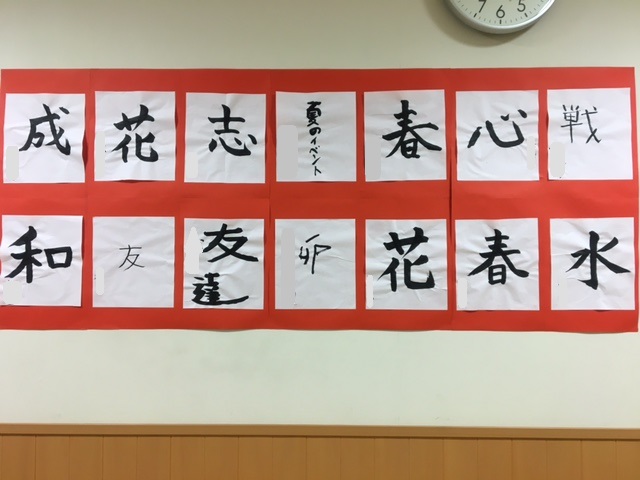 7 6 5
成
花
志
夏のイベント
春
心
戦
和
友
友達
卯
花
春
水